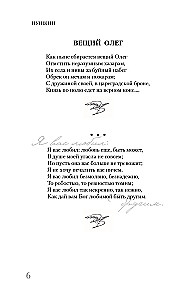 ПУШКИН
ВЕЩИЙ ОЛЕГ
Как ныне сбирается вещий Олег
Отмстить неразумным хазарам,
Их села и нивы за буйный набег
Обрек он мечам и пожарам;
С дружиной своей, в цареградской броне,
Князь по полю едет на верном коне....
* * *
Я вас любил:
Я вас любил: любовь еще, быть может,
В душе моей угасла не совсем;
Но пусть она вас больше не тревожит;
Я не хочу печалить вас ничем.
Я вас любил безмолвно, безнадежно,
То робостью, то ревностью томим;
Я вас любил так искренно, так нежно,
Как дай вам Бог любимой быть другим.
другим.
6